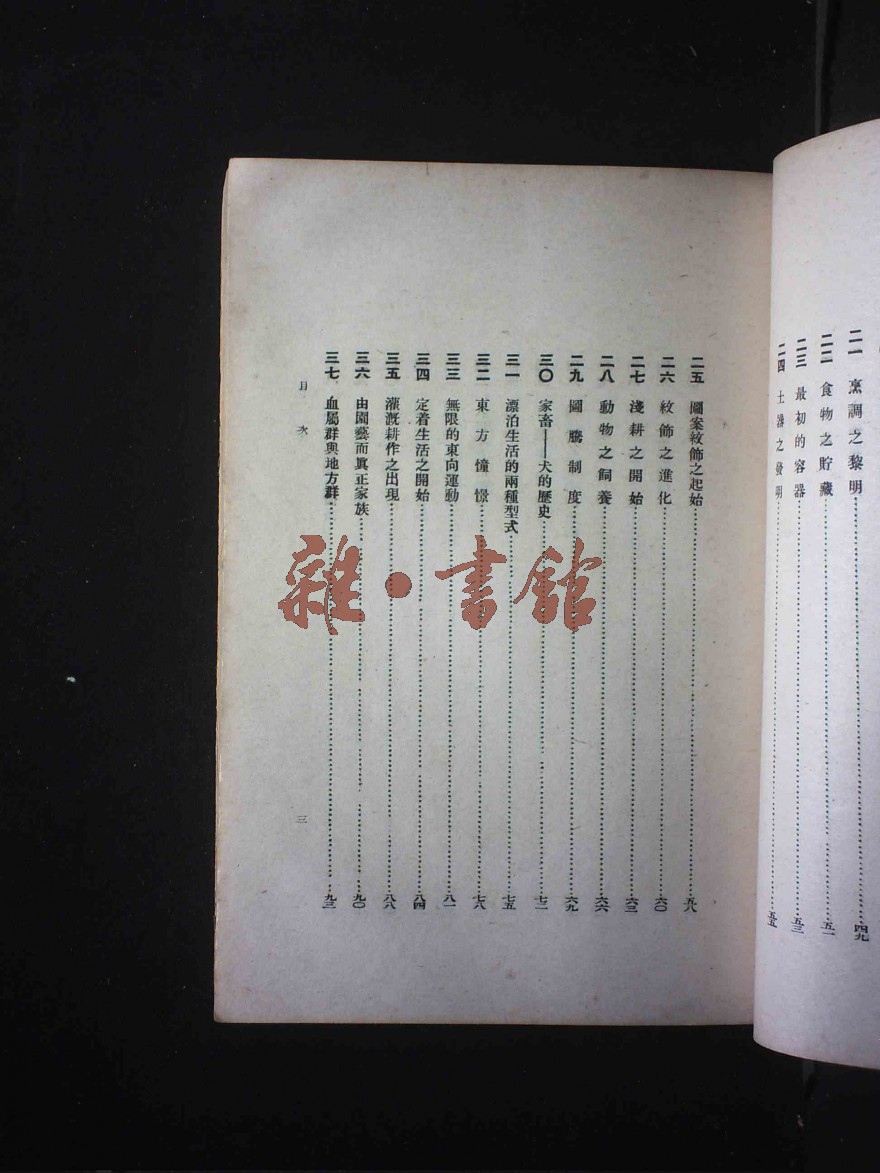 二一 烹調之黎明……四九
二二 食物之貯藏……五一
二三 最初的容器……五三
二四 土器之發明……五五
二五 圖案紋飾之起始……五八
二六 紋飾之進化……六〇
二七 淺耕之開始……六三
二八 動物之飼養……六六
二九 圖騰制度……六九
三〇 家畜——犬的歷史……七二
三一 漂泊生活的兩種型式……七五
三二 東方憧憬……七八
三三 無限的東向運動……八一
三四 定着生活之開始……八四
三五 灌溉耕作之出現……八八
三六 由園藝而眞正家族……九〇
三七 血屬群與地方群……九三
目次
三
雜·書館